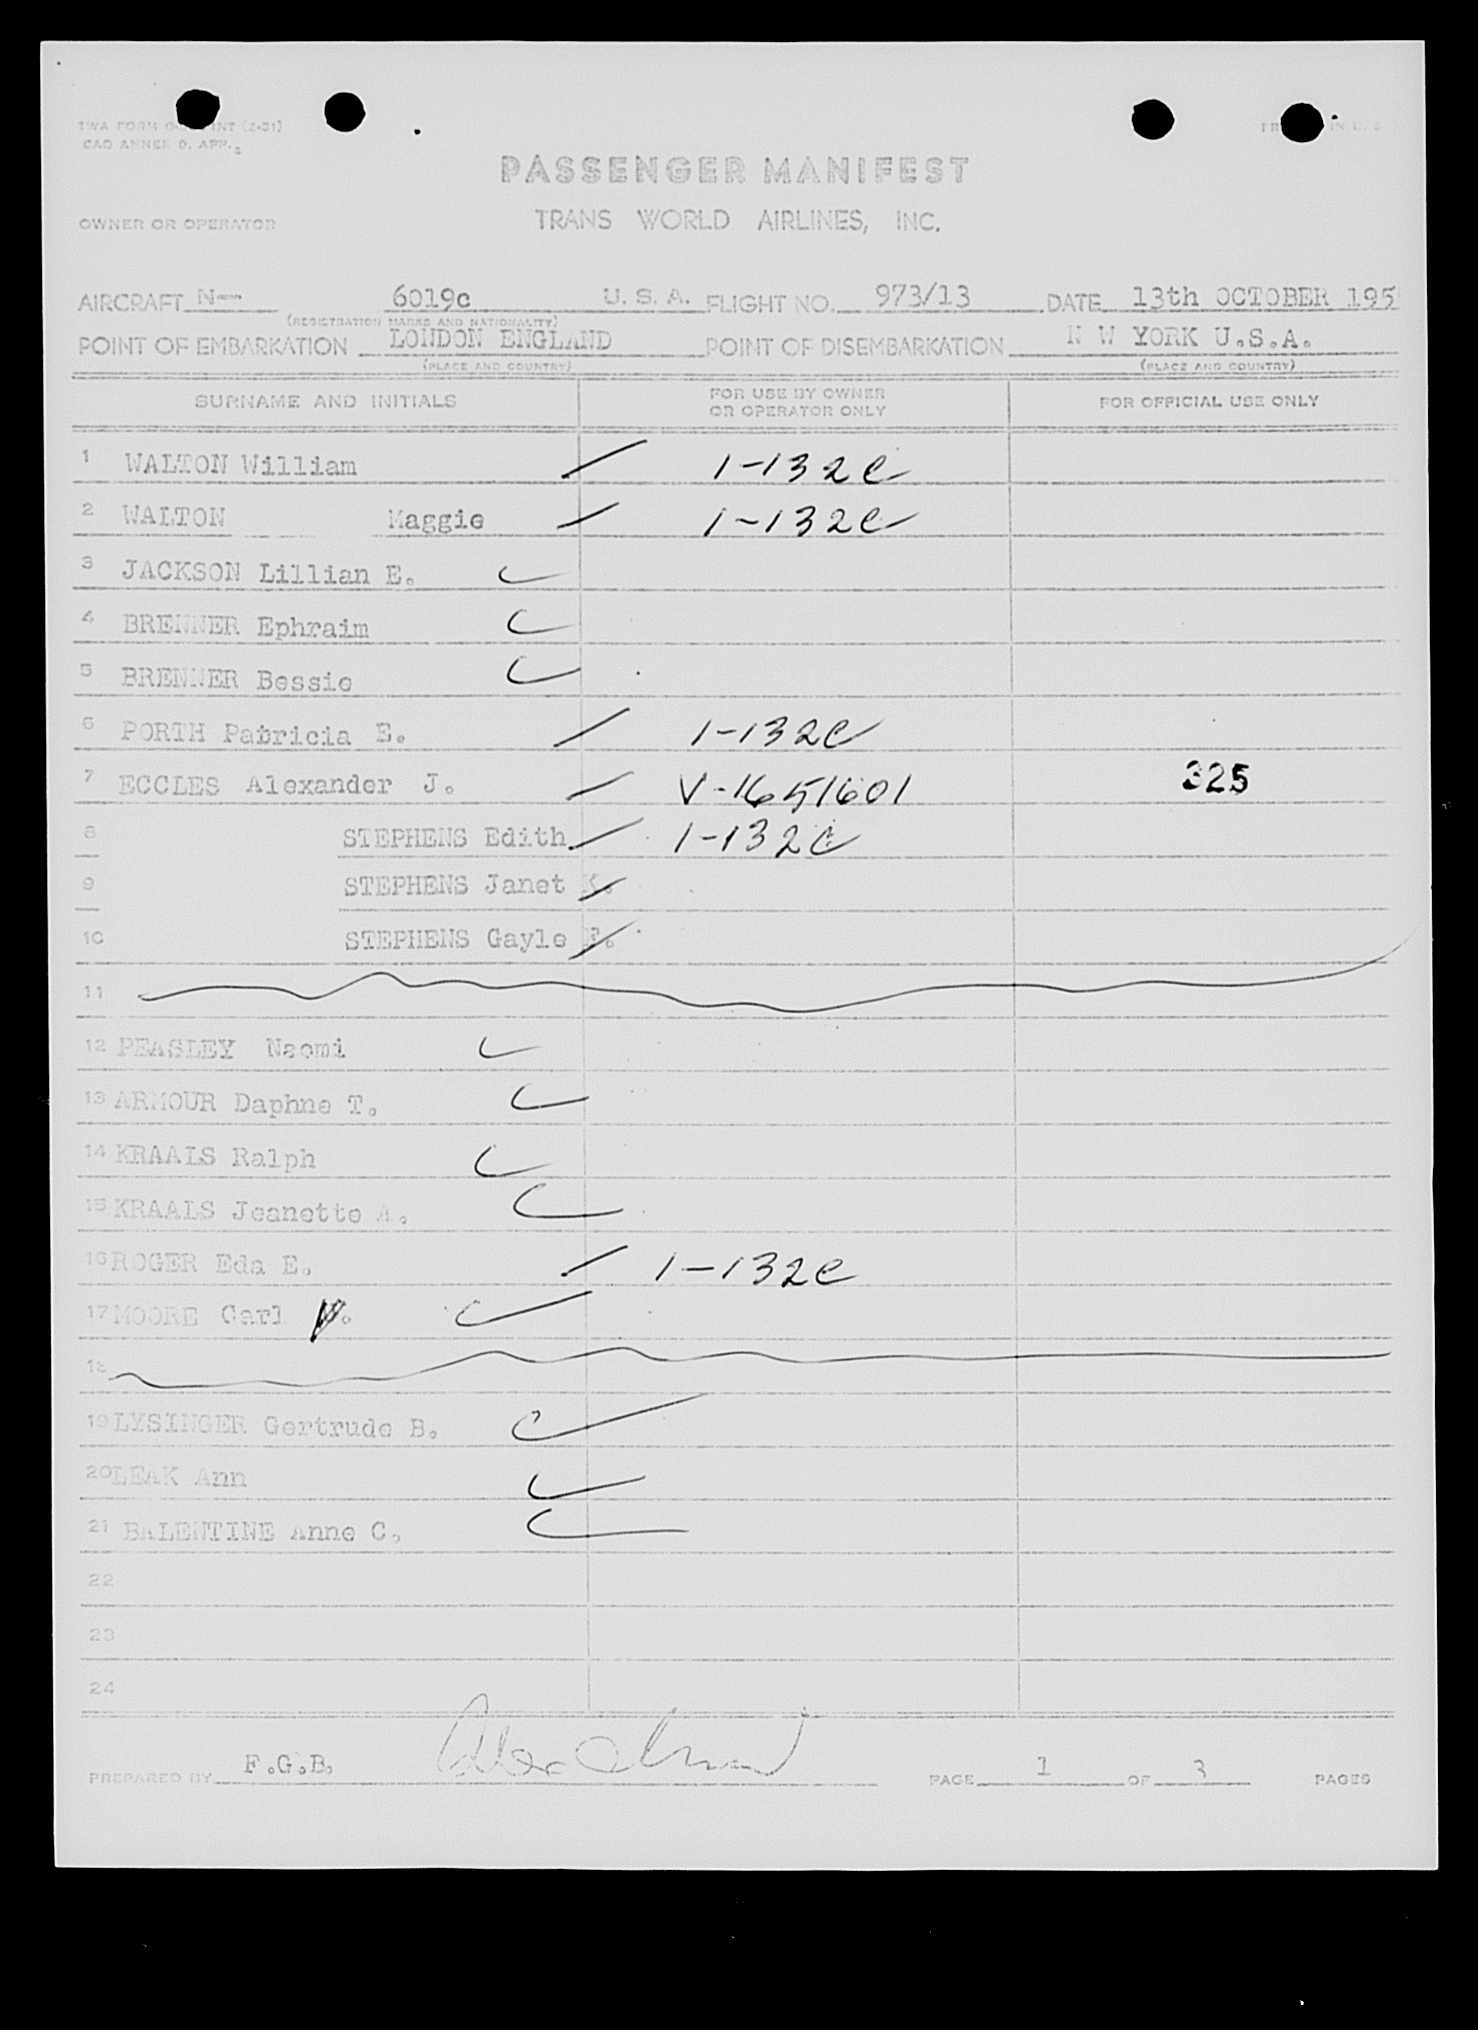 TWA FORM
CAO ANNEX 9, APP.
PASSENGER MANIFEST
OWNER OR OPERATOR TRANS WORLD AIRLINES, INC.
AIRCRAFT N-- 6019c U. S. A. FLIGHT NO. 973/13 DATE 13th OCTOBER 195
(REGISTRATION MARKS AND NATIONALITY)
POINT OF EMBARKATION LONDON ENGLAND POINT OF DISEMBARKATION N W YORK U.S.A.
(PLACE AND COUNTRY) (PLACE AND COUNTRY)
SURNAME AND INITIALS FOR USE BY OWNER OR OPERATOR ONLY FOR OFFICIAL USE ONLY
1 WALTON William 1-132C
2 WALTON Maggie 1-132C
3 JACKSON Lillian E.
4 BRENNER Ephraim
5 BRENNER Bessie
6 PORTH Patricia E. 1-132C
7 ECCLES Alexander J. V-1651601 325
8 STEPHENS Edith 1-132C
9 STEPHENS Janet K.
10 STEPHENS Gayle F.
11
12 PEASLEY Naomi
13 ARMOUR Daphne T.
14 KRAALS Ralph
15 KRAALS Jeanette A.
16 ROGER Eda E. 1-132C
17 MOORE Carl V.
18
19 LYSINGER Gertrude B.
20 LEAK Ann
21 BALENTINE Anne C.
22
23
24
PREPARED BY F.G.B. PAGE 1 OF 3 PAGES